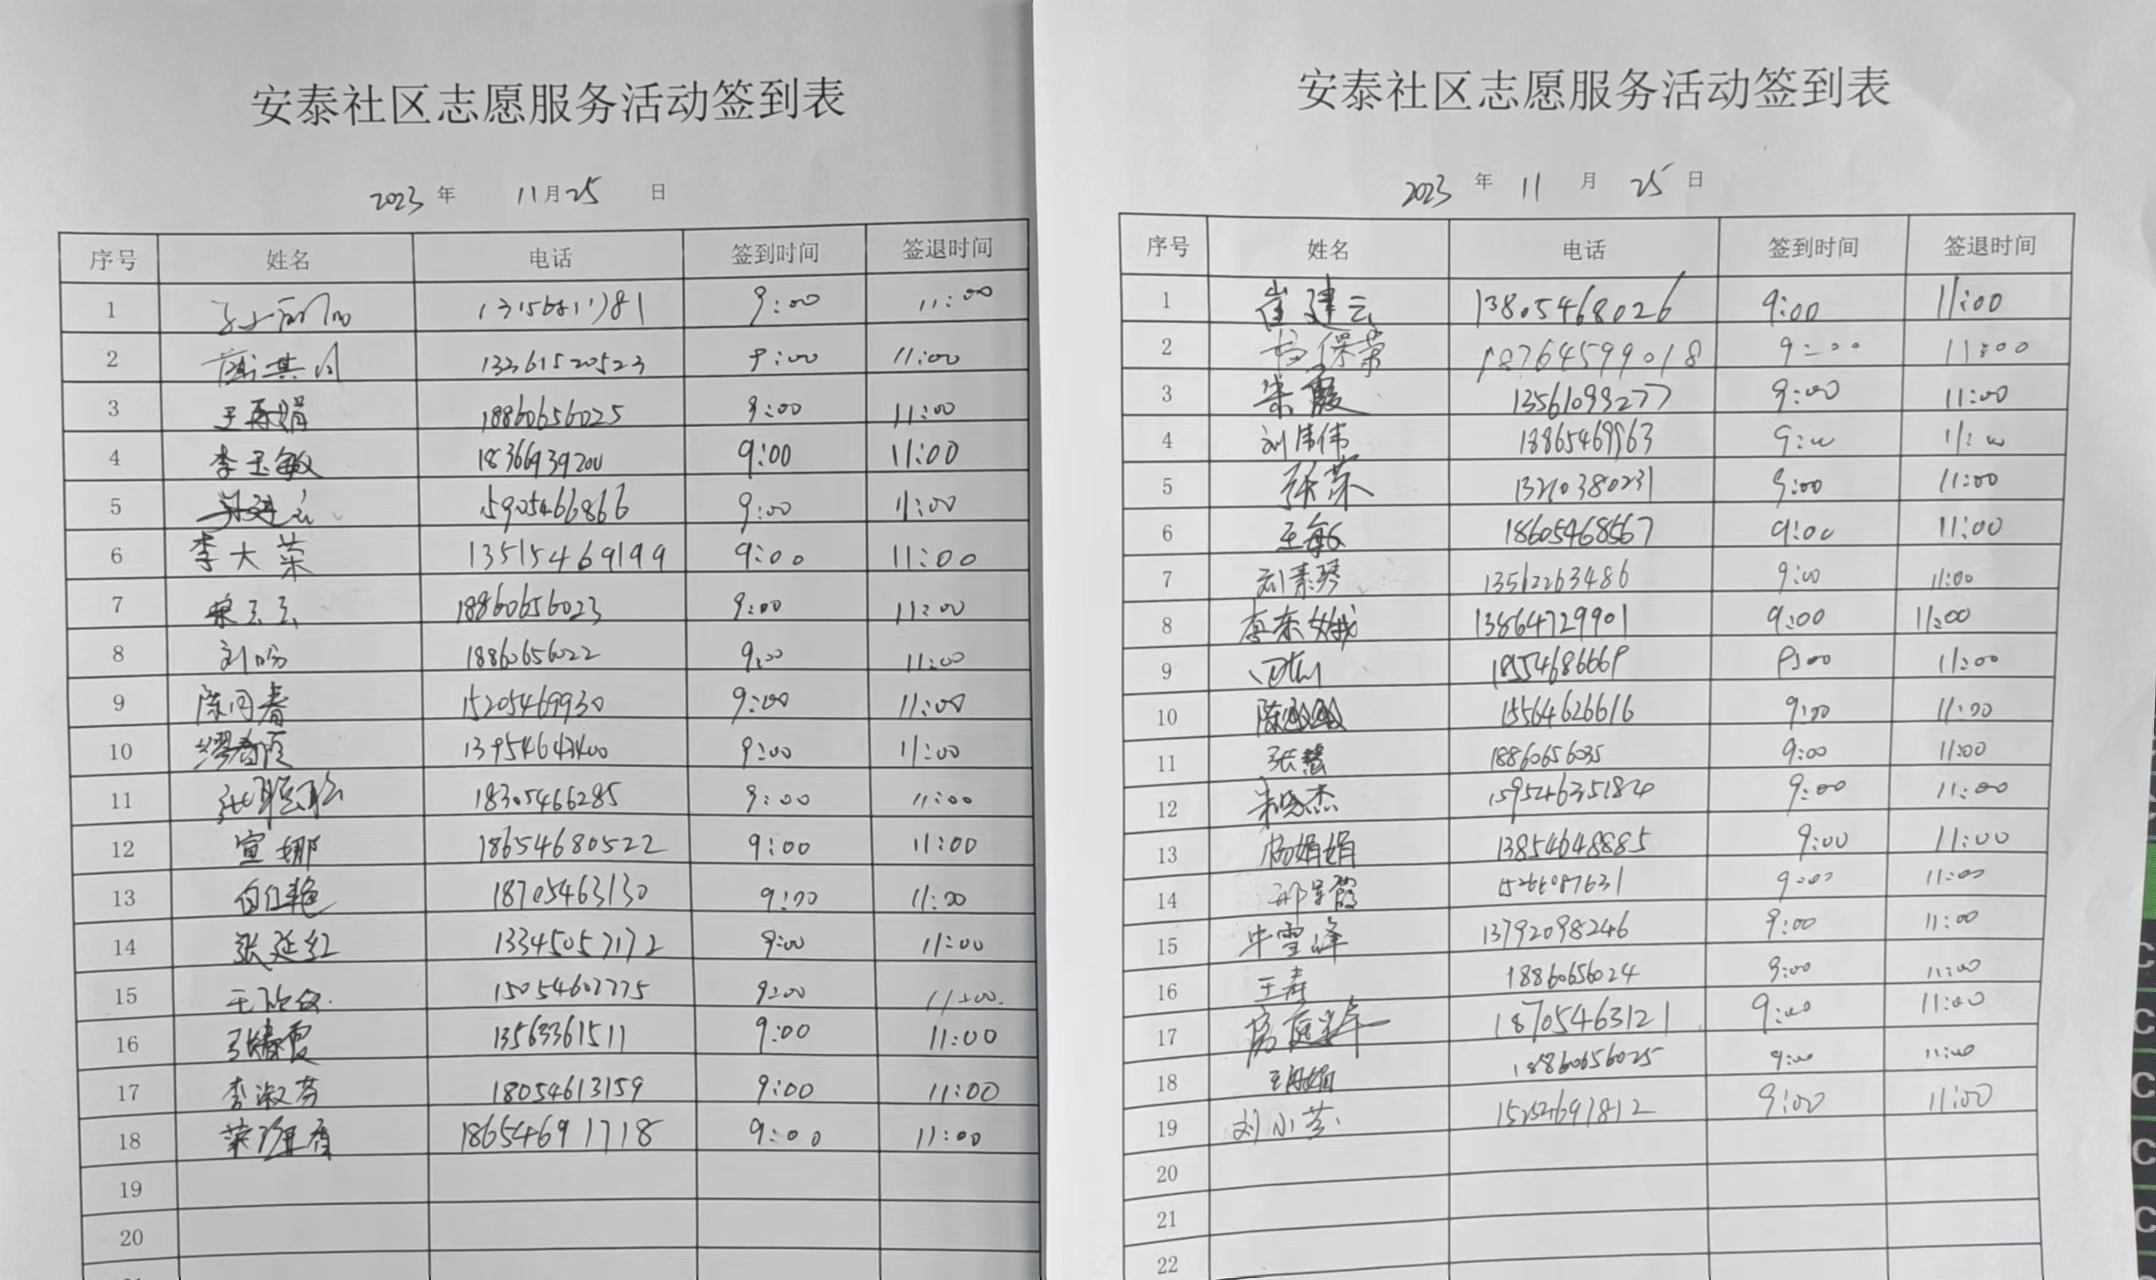 安泰社区志愿服务活动签到表
2023 年 11 月 25 日
序号 姓名 电话 签到时间 签退时间
1 9:00 11:00
2 13361520523 9:00 11:00
3 王再娟 18860656025 9:00 11:00
4 李玉敏 18366939200 9:00 11:00
5 15905466866 9:00 11:00
6 李大荣 13515469199 9:00 11:00
7 18860656023 9:00 11:00
8 刘盼 18860656022 9:00 11:00
9 陈同春 15205469930 9:00 11:00
10 9:00 11:00
11 张聪聪 18305466285 9:00 11:00
12 宣娜 18654680522 9:00 11:00
13 白红艳 18705463130 9:00 11:00
14 张延红 13345057172 9:00 11:00
15 15054607775 9:00 11:00
16 张春霞 13563361511 9:00 11:00
17 李淑芬 18054613159 9:00 11:00
18 18654691718 9:00 11:00
19
20
安泰社区志愿服务活动签到表
2023 年 11 月 25 日
序号 姓名 电话 签到时间 签退时间
1 崔建云 13805468026 9:00 11:00
2 保荣 18764599018 9:00 11:00
3 朱霞 13561093277 9:00 11:00
4 刘伟伟 13865469963 9:00 11:00
5 张荣 13210380231 9:00 11:00
6 王敏 18605468567 9:00 11:00
7 刘素琴 13562263486 9:00 11:00
8 李东娥 13864729901 9:00 11:00
9 9:00 11:00
10 陈 15564626616 9:00 11:00
11 张慧 18860656035 9:00 11:00
12 杰 9:00 11:00
13 杨娟娟 13854648885 9:00 11:00
14 霞 15266087631 9:00 11:00
15 牛雪峰 13792098246 9:00 11:00
16 王寿 18860656024 9:00 11:00
17 18705463121 9:00 11:00
18 18860656025 9:00 11:00
19 刘小芸 9:00 11:00
20
21
22